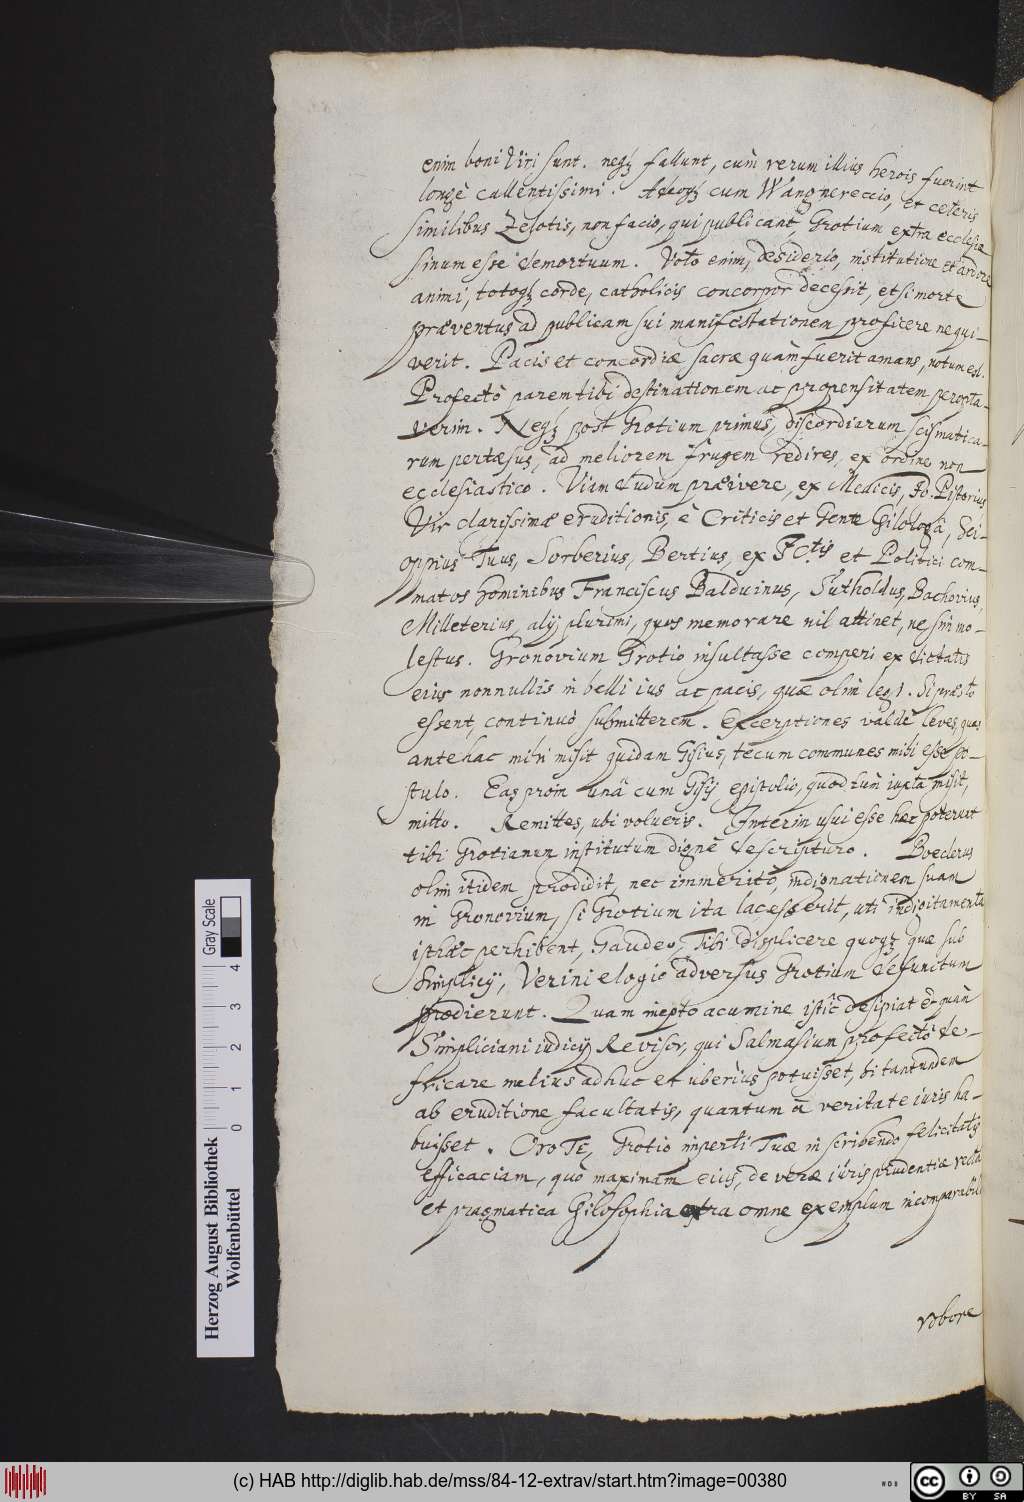 enim boni Viri sunt. neq3 fallunt, cum verum illius herois fuerint
longè callentissimi. cum Wangnereccio, et ceteris
similibus Zelotis, non facio, qui publicant, Grotium extra ecclesiæ
sinum esse demortuum. Voto enim, desiderio, institutione et ardore
animi, totoq3 corde, catholicis concorpor decessit, etsi morte
præventus ad publicam sui manifestationem proficere nequi-
verit. Pacis et concordiæ sacræ quàm fuerit amans, notum est.
Profectò parem tibi destinationem ac propensitatem peropta-
verim. Neq3 post Grotium primus, discordiarum scismatica-
rum pertæsus, ad meliorem frugem redires, ex ordine non
ecclesiastico. Viam dudum præivere, ex Medicis, Jo. Pistorius
Vir clarissimæ eruditionis, è Criticis et Gente Philologâ, Sci-
oppius Tuus, Sorberius, Bertius, ex JCtis et Politici com-
matos hominibus Franciscus Balduinus, Sutholdus, Bachovius,
Milleterius, alij plurimi, quos memorare nil attinet, ne sim mo-
lestus. Gronovium Grotio insultasse comperi ex dictatis
eius nonnullis in belli ius ac pacis, quæ olim legi. Si præsto
essent, continuò submitterem. Exceptiones valdè leves, quas
antehac mihi misit quidam Gisius, tecum communes mihi esse po-
stulo. Eas proin unâ cum Gisij epistolio, quod tum iuxta misit,
mitto. Remittes, ubi volueris. Interim usui esse hæc poterunt
tibi Grotianum institutum dignè descripturo. Boeclerus
olim itidem prodidit, nec immeritò, indignationem suam
in Gronovium, si Grotium ita lacesserit, uti indigitamenta
isthæc perhibent, Gaudeo, Tibi displicere quoq3 quæ sub
Simplicij, Verini elogio adversus Grotium defunctum
prodierunt. Quam inepto acumine istìc desipiat
Simpliciani iudicij Revisor, qui Salmasium profectò de-
fricare melius adhuc et uberius potuisset, si tantundem
ab eruditione facultatis, quantum à veritate iuris ha-
buisset. Oro Te, Grotio imperti Tuæ in scribendo felicitatis
efficaciam, quò maximam eius, de veræ iurisprudentiæ recta
et pragmatica Philosophia extra omne exemplum incomparabili
robore
Herzog August Bibliothek
Wolfenbüttel
0 1 2 3 4
Gray Scale
(c) HAB http://diglib.hab.de/mss/84-12-extrav/start.htm?image=00380
cc BY SA